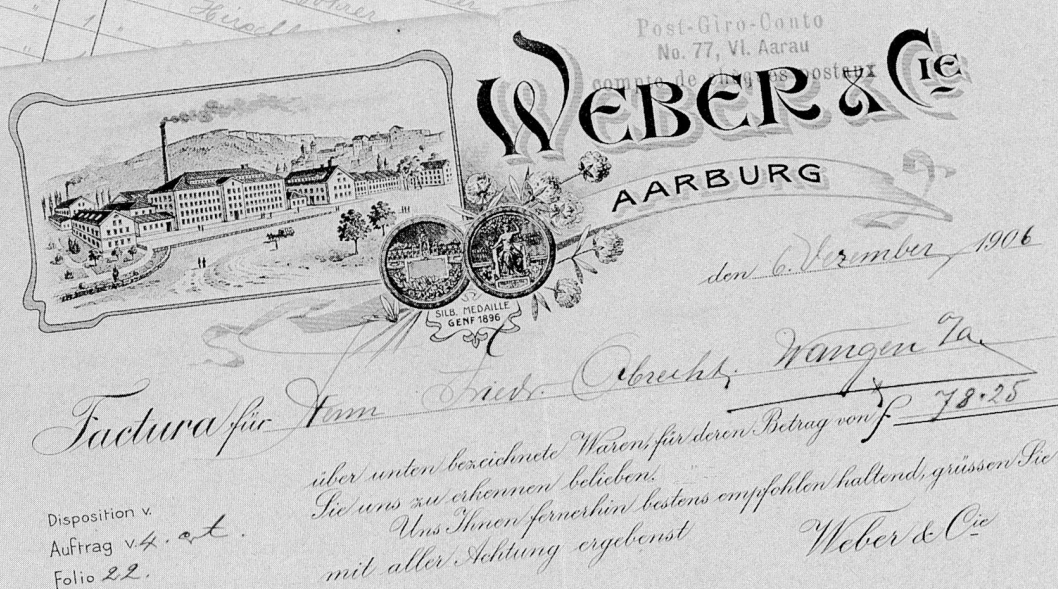 Post-Giro-Conto
No. 77, VI. Aarau
compte de chèques postaux
WEBER & CIE
AARBURG
SILB. MEDAILLE
GENF 1896
den 6. Dezember 1906
Factura für Herrn Friedr. Obrecht, Wangen a/a.
über unten bezeichnete Waren, für deren Betrag von f 78.25
Sie uns zu erkennen belieben.
Uns Ihnen fernerhin bestens empfohlen haltend, grüssen Sie
mit aller Achtung ergebenst
Weber & Cie
Disposition v.
Auftrag v. 4. ct.
Folio 22.